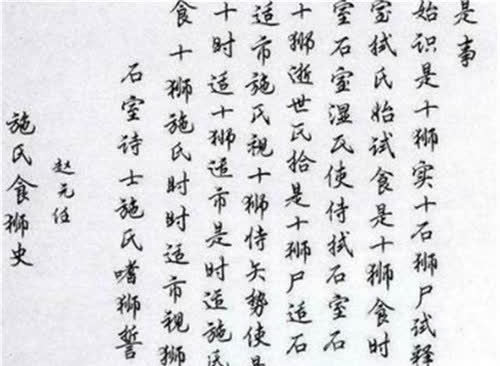 施氏食狮史
赵元任
石室诗士施氏嗜狮誓
食十狮施氏时时适市视狮
十时适十狮适市是时适施氏
适市施氏视十狮恃矢势使是
十狮逝世氏拾是十狮尸适石
室石室湿氏使侍拭石室石
室拭氏始试食是十狮食时
始识是十狮实十石狮尸试释
是事